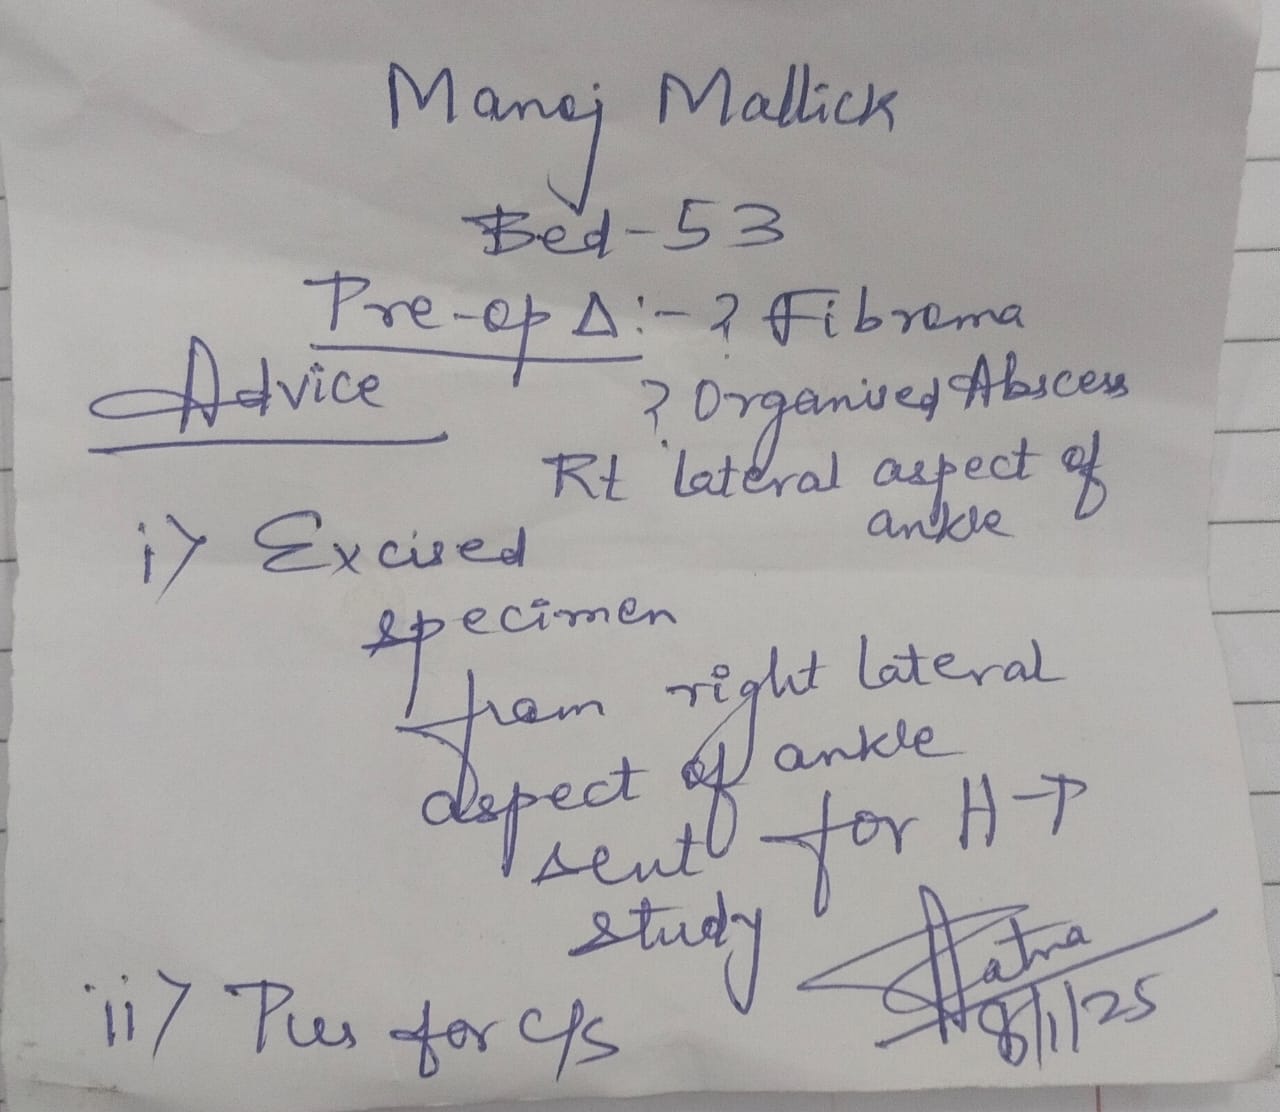 Manoj Mallick
Bed-53
Pre-op Δ:- ? Fibroma
Advice
? Organised Abscess
Rt lateral aspect of
ankle
i) Excised
specimen
from right lateral
aspect of ankle
sent for H-P
study
ii) Pus for c/s
8/1/25